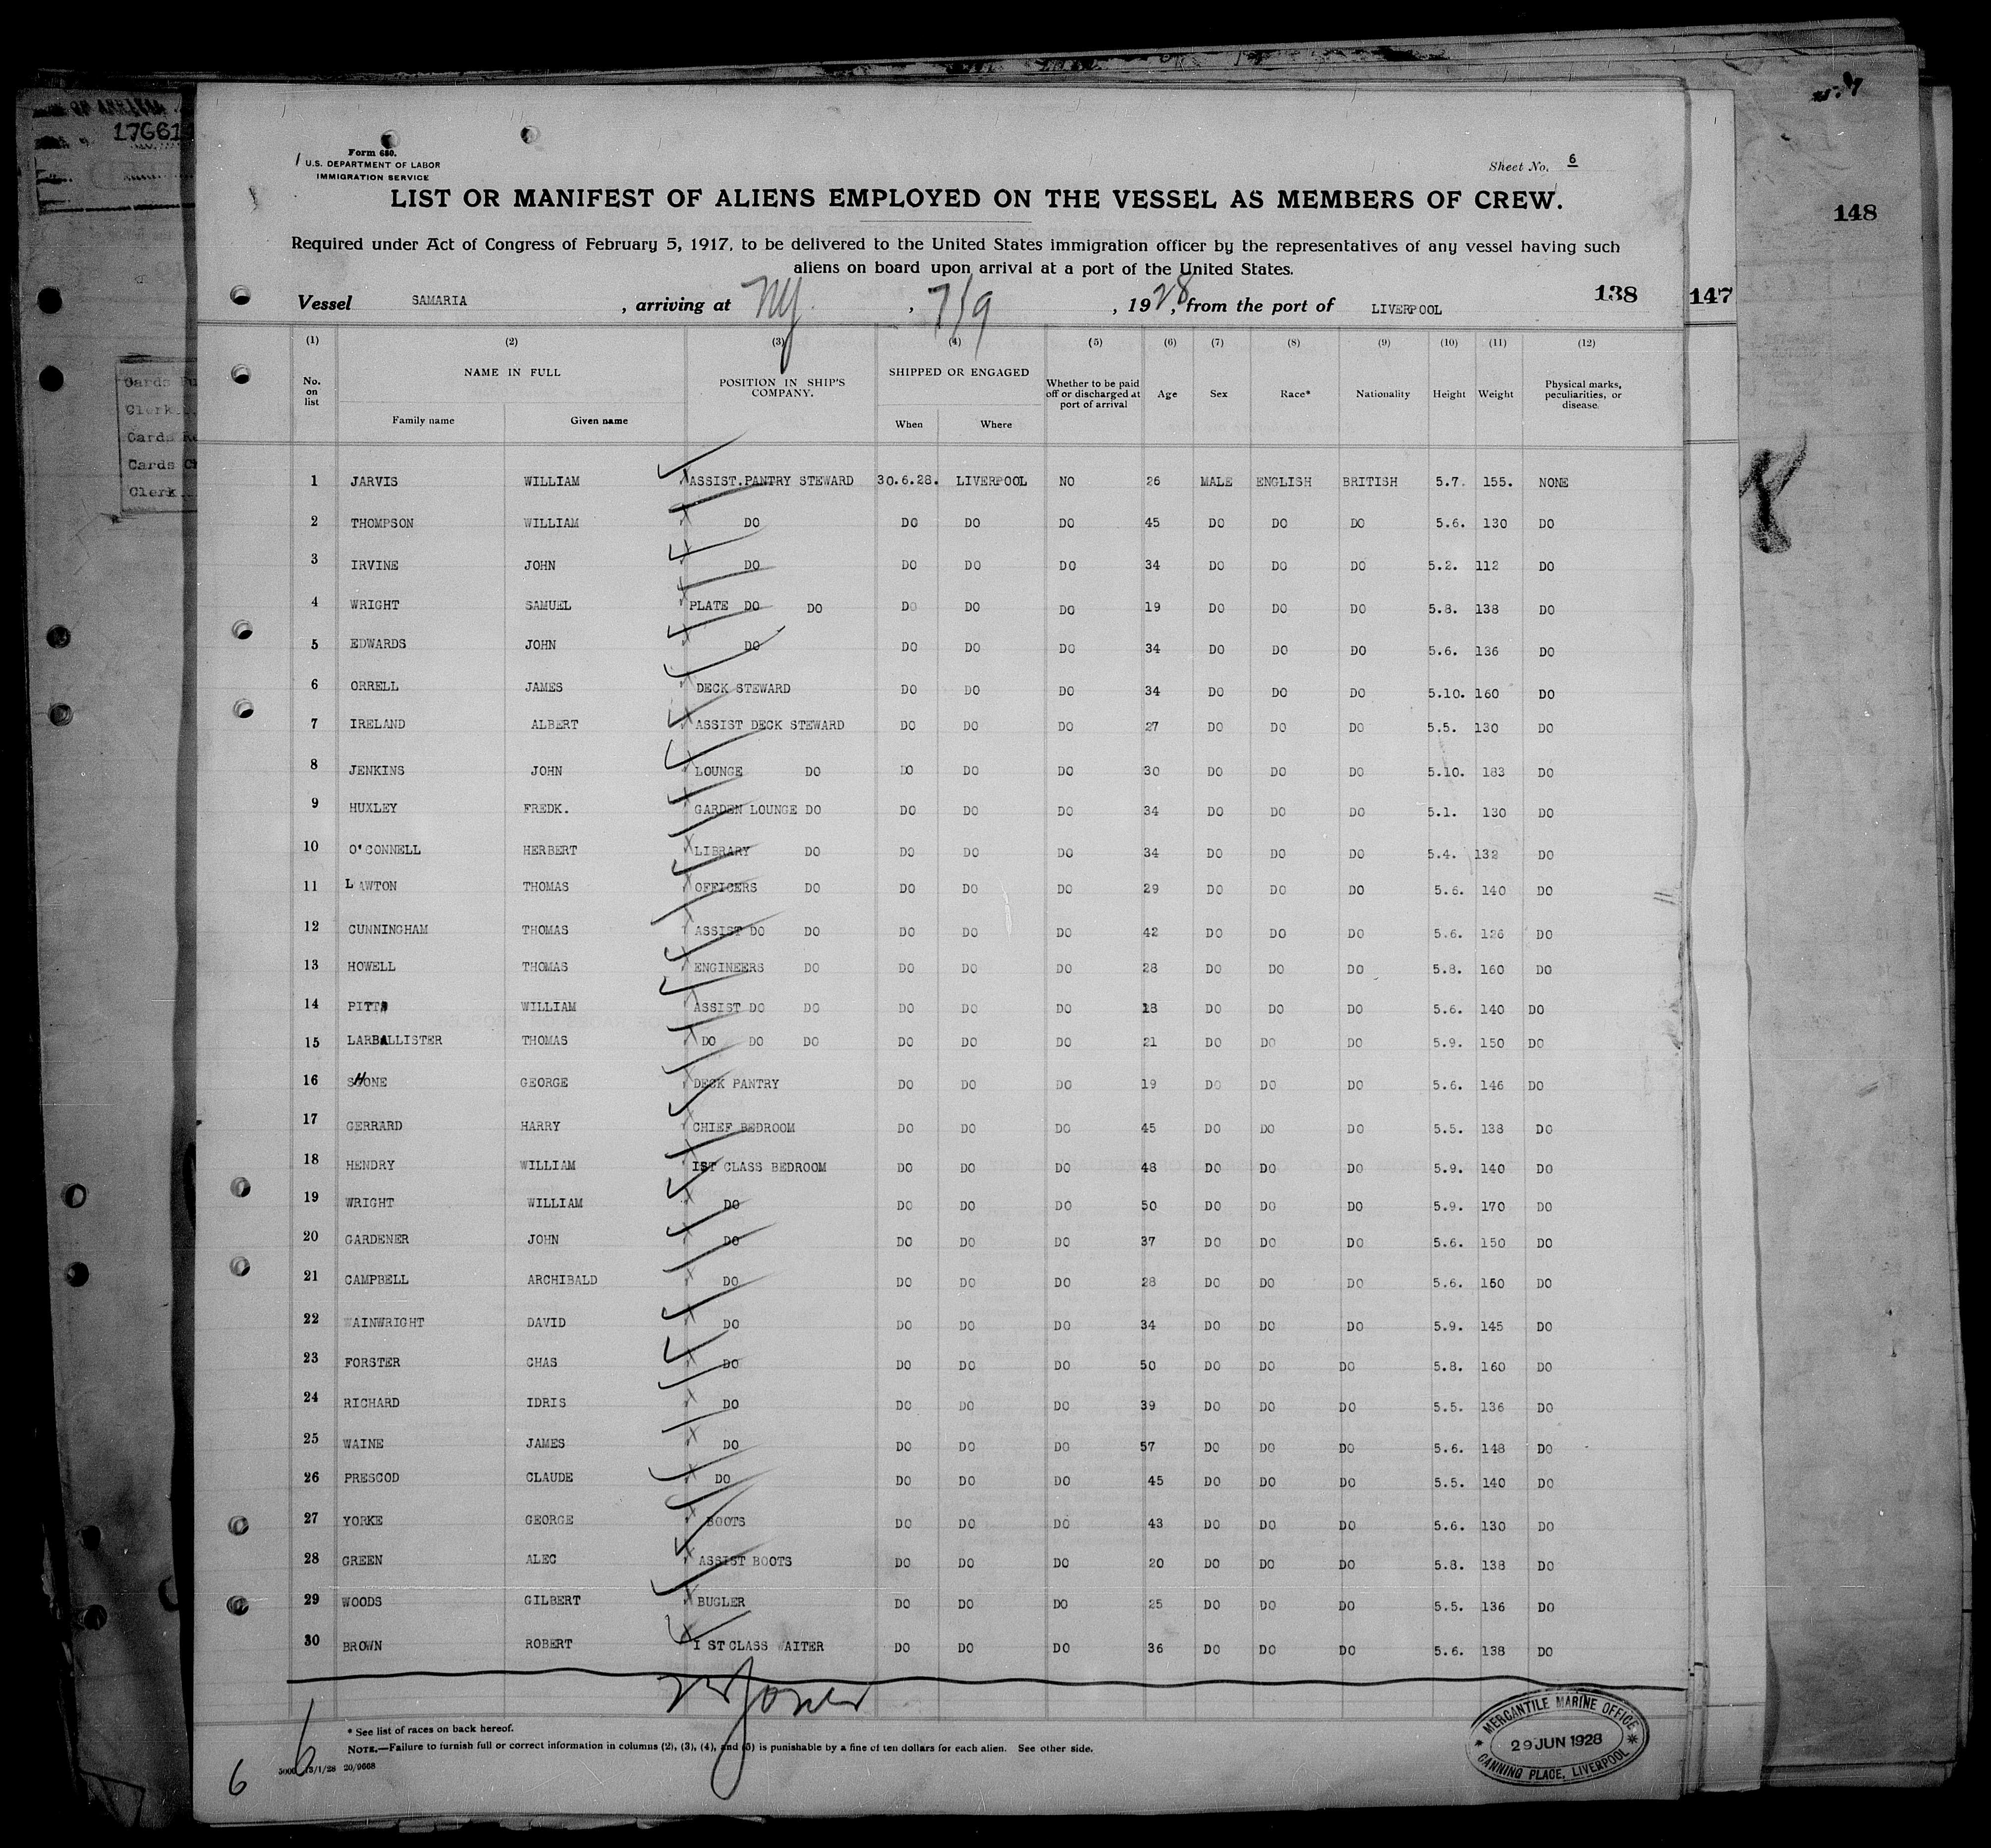 17661
148
147
138
Form 680.
U.S. DEPARTMENT OF LABOR
IMMIGRATION SERVICE
Sheet No. 6
LIST OR MANIFEST OF ALIENS EMPLOYED ON THE VESSEL AS MEMBERS OF CREW.
Required under Act of Congress of February 5, 1917, to be delivered to the United States immigration officer by the representatives of any vessel having such
aliens on board upon arrival at a port of the United States.
Vessel SAMARIA , arriving at NY , 7/9 , 1928, from the port of LIVERPOOL
(1) (2) (3) (4) (5) (6) (7) (8) (9) (10) (11) (12)
No. on list NAME IN FULL Family name Given name POSITION IN SHIP'S COMPANY. SHIPPED OR ENGAGED When Where Whether to be paid off or discharged at port of arrival Age Sex Race* Nationality Height Weight Physical marks, peculiarities, or disease
1 JARVIS WILLIAM ASSIST.PANTRY STEWARD 30.6.28. LIVERPOOL NO 26 MALE ENGLISH BRITISH 5.7. 155. NONE
2 THOMPSON WILLIAM DO DO DO DO 45 DO DO DO 5.6. 130 DO
3 IRVINE JOHN DO DO DO DO 34 DO DO DO 5.2. 112 DO
4 WRIGHT SAMUEL PLATE DO DO DO DO DO 19 DO DO DO 5.8. 138 DO
5 EDWARDS JOHN DO DO DO DO 34 DO DO DO 5.6. 136 DO
6 ORRELL JAMES DECK STEWARD DO DO DO 34 DO DO DO 5.10. 160 DO
7 IRELAND ALBERT ASSIST DECK STEWARD DO DO DO 27 DO DO DO 5.5. 130 DO
8 JENKINS JOHN LOUNGE DO DO DO DO 30 DO DO DO 5.10. 183 DO
9 HUXLEY FREDK. GARDEN LOUNGE DO DO DO DO 34 DO DO DO 5.1. 130 DO
10 O'CONNELL HERBERT LIBRARY DO DO DO DO 34 DO DO DO 5.4. 132 DO
11 LAWTON THOMAS OFFICERS DO DO DO DO 29 DO DO DO 5.6. 140 DO
12 CUNNINGHAM THOMAS ASSIST DO DO DO DO DO 42 DO DO DO 5.6. 126 DO
13 HOWELL THOMAS ENGINEERS DO DO DO DO 28 DO DO DO 5.8. 160 DO
14 PITT WILLIAM ASSIST DO DO DO DO DO DO DO DO 5.6. 140 DO
15 LARBALLISTER THOMAS DO DO DO DO DO DO 21 DO DO DO 5.9. 150 DO
16 SHONE GEORGE DECK PANTRY DO DO DO 19 DO DO DO 5.6. 146 DO
17 GERRARD HARRY CHIEF BEDROOM DO DO DO 45 DO DO DO 5.5. 138 DO
18 HENDRY WILLIAM IST CLASS BEDROOM DO DO DO 48 DO DO DO 5.9. 140 DO
19 WRIGHT WILLIAM DO DO DO DO 50 DO DO DO 5.9. 170 DO
20 GARDENER JOHN DO DO DO DO 37 DO DO DO 5.6. 150 DO
21 CAMPBELL ARCHIBALD DO DO DO DO 28 DO DO DO 5.6. 150 DO
22 WAINWRIGHT DAVID DO DO DO DO 34 DO DO DO 5.9. 145 DO
23 FORSTER CHAS DO DO DO DO 50 DO DO DO 5.8. 160 DO
24 RICHARD IDRIS DO DO DO DO 39 DO DO DO 5.5. 136 DO
25 WAINE JAMES DO DO DO DO 57 DO DO DO 5.6. 148 DO
26 PRESCOD CLAUDE DO DO DO DO 45 DO DO DO 5.5. 140 DO
27 YORKE GEORGE BOOTS DO DO DO 43 DO DO DO 5.6. 130 DO
28 GREEN ALEC ASSIST BOOTS DO DO DO 20 DO DO DO 5.8. 138 DO
29 WOODS GILBERT BUGLER DO DO DO 25 DO DO DO 5.5. 136 DO
30 BROWN ROBERT I ST CLASS WAITER DO DO DO 36 DO DO DO 5.6. 138 DO
* See list of races on back hereof.
NOTE.—Failure to furnish full or correct information in columns (2), (3), (4), and (5) is punishable by a fine of ten dollars for each alien. See other side.
13/1/28 20/9668
6
6
MERCANTILE MARINE OFFICE
29 JUN 1928
CANNING PLACE, LIVERPOOL
Cards
Clerk
Cards
Cards
Clerk